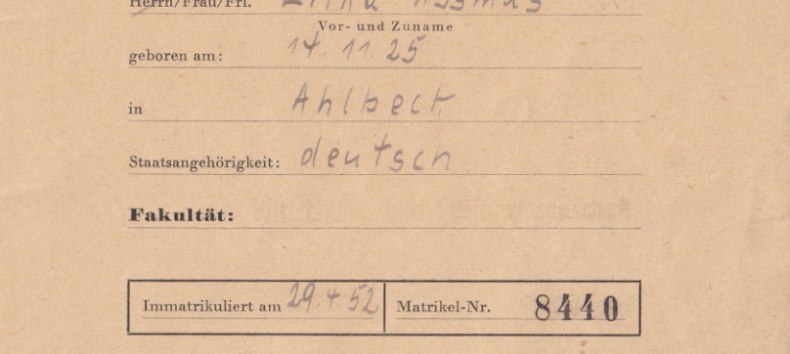 Herrn/Frau/Frl.
Vor- und Zuname
geboren am: 14.11.25
in Ahlbeck
Staatsangehörigkeit: deutsch
Fakultät:
Immatrikuliert am 29.4.52 Matrikel-Nr. 8440